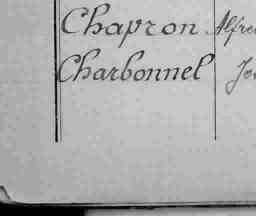 Chapron Alfre
Charbonnel